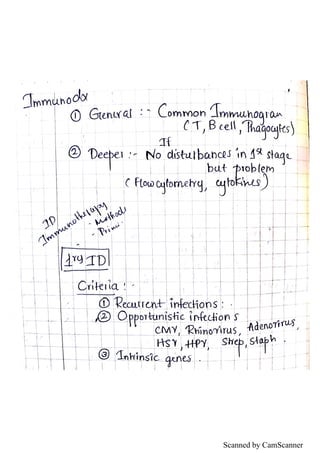 Immunodx
① General :- Common Immunogram
(T, B cell, Phagocytes)
If
② Deeper :- No disturbances in 1st stage
but problem
(Flow cytometry, cytokines)
ID
Immunotherapy
- Methods
- Prim.
1ry ID
Criteria : -
① Recurrent infections : .
② Opportunistic infections
CMV, Rhinovirus, Adenovirus,
HSV, HPV, Strep, Staph .
③ Intrinsic genes .
Scanned by CamScanner